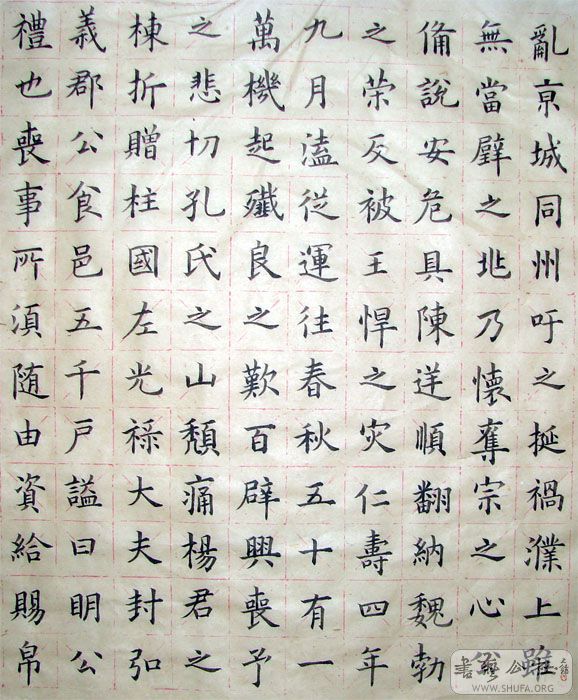 亂京城同州吁之挻禍濮上雖
無當璧之兆乃懷奪宗之心公
俻說安危具陳逆順翻納魏勃
之荣反被王悍之灾仁壽四年
九月溘從運往春秋五十有一
萬機起殲良之歎百辟興喪予
之悲切孔氏之山頹痛楊君之
棟折贈柱國左光祿大夫封弘
義郡公食邑五千戶謚曰明公
禮也喪事所須随由資給賜帛
WWW.SHUFA.ORG